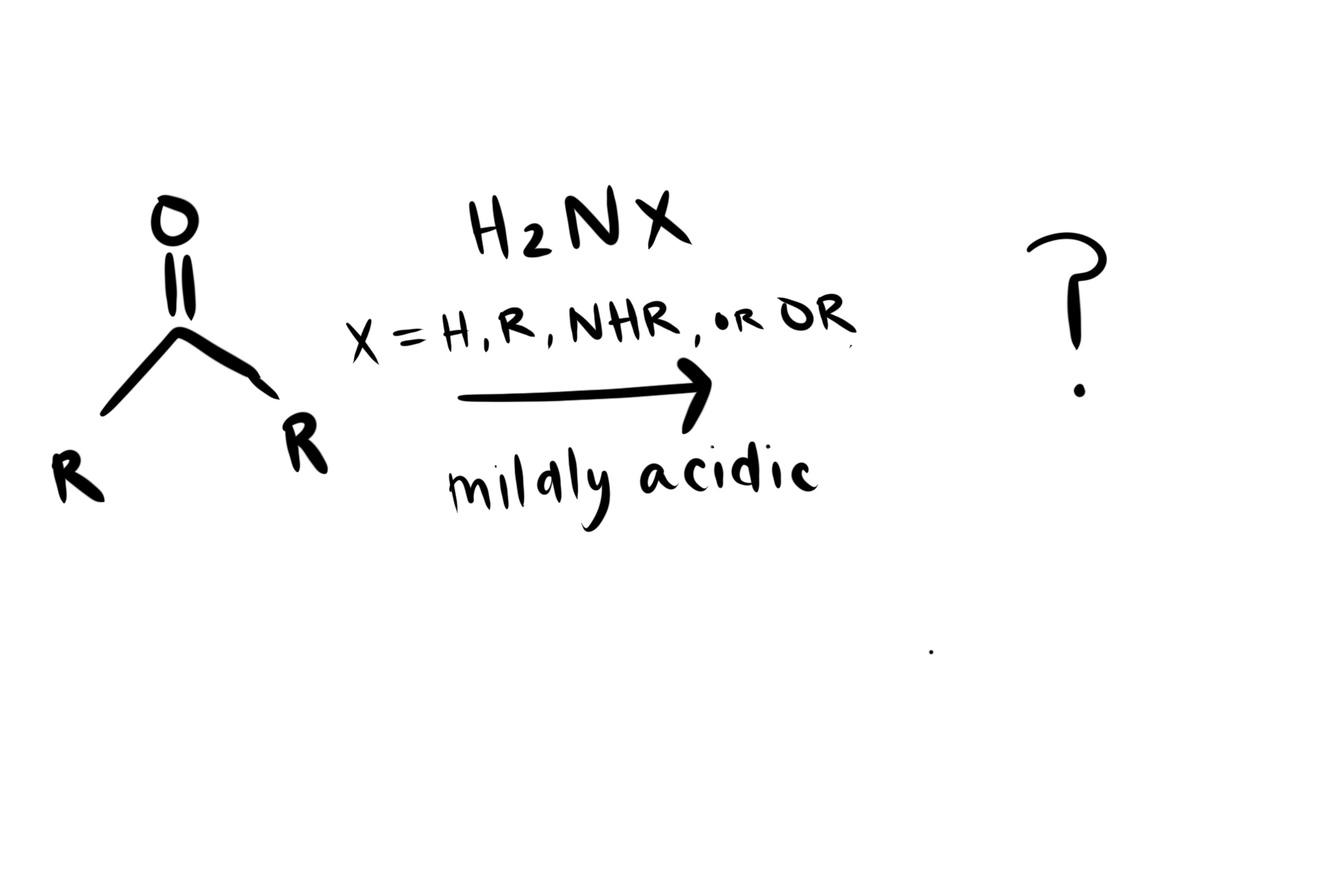 O
H₂NX
X = H, R, NHR, OR OR
R
R
mildly acidic
?